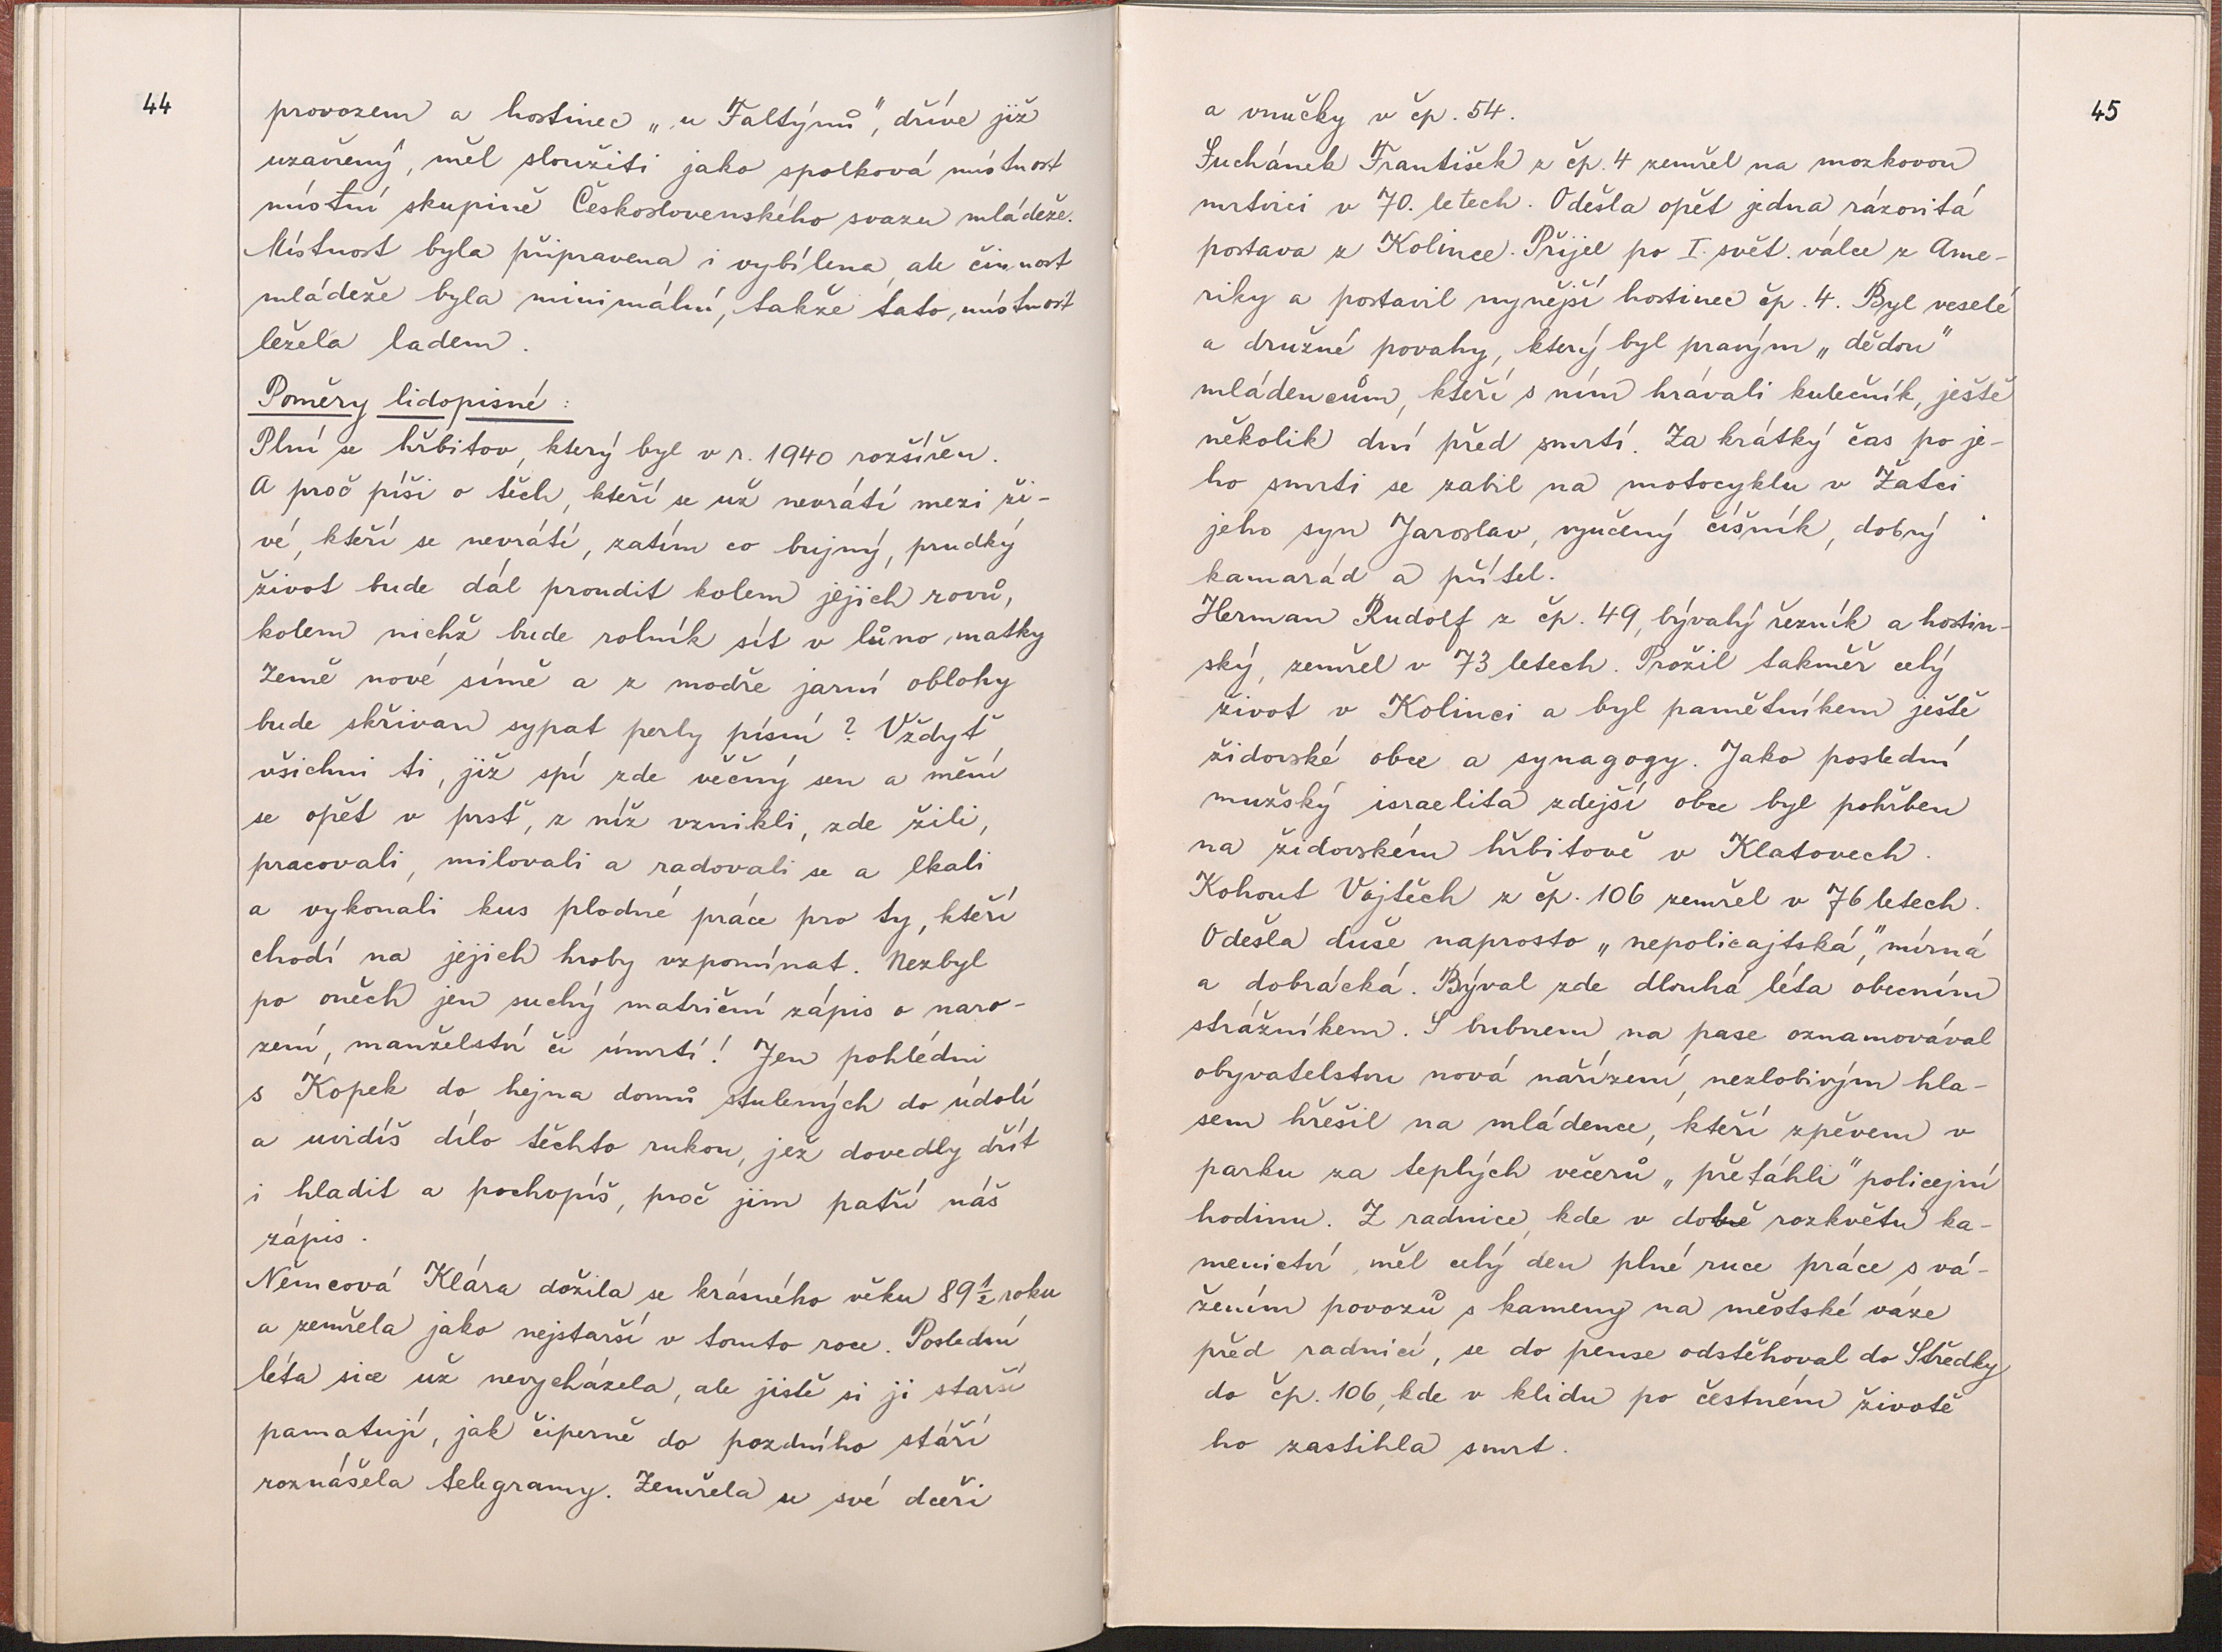 44
provozem a hostinec „u Faltýnů", dříve již
uzavřený, měl sloužiti jako spolková místnost
místní skupině Československého svazu mládeže.
Místnost byla připravena i vybílena, ale činnost
mládeže byla minimální, takže tato, místnost
ležela ladem.
Poměry lidopisné:
Plní se hřbitov, který byl v r. 1940 rozšířen.
A proč píši o těch, kteří se už nevrátí mezi ži-
vé, kteří se nevrátí, zatím co bujný, prudký
život bude dál proudit kolem jejich rovů,
kolem nichž bude rolník sít v lůno matky
Země nové símě a z modře jarní oblohy
bude skřivan sypat perly písní? Vždyť
všichni ti, již spí zde věčný sen a mění
se opět v prsť, z níž vznikli, zde žili,
pracovali, milovali a radovali se a lkali
a vykonali kus plodné práce pro ty, kteří
chodí na jejich hroby vzpomínat. Nezbyl
po oněch jen suchý matriční zápis o naro-
zení, manželství či úmrtí! Jen pohlédni
s Kopek do hejna domů stulených do údolí
a uvidíš dílo těchto rukou, jež dovedly dřít
i hladit a pochopíš, proč jim patří náš
zápis.
Němcová Klára dožila se krásného věku 89 1/2 roku
a zemřela jako nejstarší v tomto roce. Poslední
léta sice už nevycházela, ale jistě si ji starší
pamatují, jak čiperně do pozdního stáří
roznášela telegramy. Zemřela u své dceři
45
a vnučky v čp. 54.
Suchánek František z čp. 4 zemřel na mozkovou
mrtvici v 70. letech. Odešla opět jedna rázovitá
postava z Kolince. Přijel po I. svět. válce z Ame-
riky a postavil nynější hostinec čp. 4. Byl veselé
a družné povahy, který byl pravým „dědou"
mládencům, kteří s ním hrávali kulečník, ještě
několik dní před smrtí. Za krátký čas po je-
ho smrti se zabil na motocyklu v Žatci
jeho syn Jaroslav, vyučený číšník, dobrý
kamarád a přítel.
Herman Rudolf z čp. 49, bývalý řezník a hostin-
ský, zemřel v 73 letech. Prožil takměř celý
život v Kolinci a byl pamětníkem ještě
židovské obce a synagogy. Jako poslední
mužský israelita zdejší obce byl pohřben
na židovském hřbitově v Klatovech.
Kohout Vojtěch z čp. 106 zemřel v 76 letech.
Odešla duše naprosto „nepolicajtská", mírná
a dobrácká. Býval zde dlouhá léta obecním
strážníkem. S bubnem na pase oznamovával
obyvatelstvu nová nařízení, nezlobivým hla-
sem hřešil na mládence, kteří zpěvem v
parku za teplých večerů „přetáhli" policejní
hodinu. Z radnice, kde v době rozkvětu ka-
menictví měl celý den plné ruce práce s vá-
žením povozů s kameny na městské váze
před radnicí, se do pense odstěhoval do Středky
do čp. 106, kde v klidu po čestném životě
ho zastihla smrt.